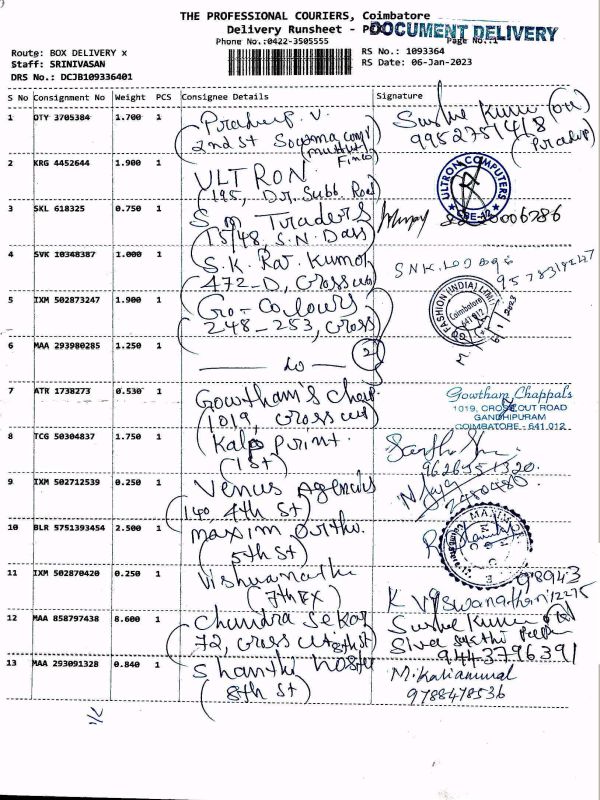 THE PROFESSIONAL COURIERS, Coimbatore
Delivery Runsheet -
DOCUMENT DELIVERY
Phone No.:0422-3505555
Page No.:1
Route: BOX DELIVERY x
RS No.: 1093364
Staff: SRINIVASAN
RS Date: 06-Jan-2023
DRS No.: DCJB109336401
S No Consignment No Weight PCS Consignee Details Signature
1 OTY 3705384 1.700 1 Pradeep. V. Sushe Kumar
(2nd st 9952751418
(Pradeep)
2 KRG 4452644 1.900 1 ULTRON ULTRON COMPUTERS
(195, Dr. Subb Road
3 SKL 618325 0.750 1 S m Traders
(15/48, S.N. Das
4 SVK 10348387 1.000 1 S.K. Raj Kumar
(472-D, Cross cut 9578319247
5 IXM 502873247 1.900 1 Go-Colours GO FASHION (INDIA) LIMITED
(248-253, Cross Coimbatore
641 012
6 MAA 293980285 1.250 1 do (2)
7 ATR 1738273 0.530 1 Gowtham's Chap. Gowtham Chappals
(1019, Cross cut 1019, CROSS CUT ROAD
GANDHIPURAM
COIMBATORE - 641 012
8 TCG 50304837 1.750 1 Kalp Print.
(1st) 9626551320.
9 IXM 502712539 0.250 1 Venus Agencies
(140 4th St)
10 BLR 5751393454 2.500 1 maxim ortho.
(5th St)
11 IXM 502870420 0.250 1 Vishwanath K Viswanathan
(7th Ex)
12 MAA 858797438 8.600 1 Chandra Sekar Sushe Kumar
72, Cross cut 8th st) Siva Sakthi
9443796391
13 MAA 293091328 0.840 1 Shanthi Hostel M. Kaliammal
(8th St) 9788478536